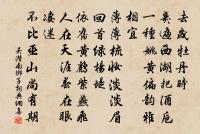 去歲牡丹時
幾遍西湖把酒卮
一種姚黃偏韻雅
相宜
薄薄梳妝淡淡眉
回首綠楊堤
依舊黃鸝紫燕飛
人在天涯春在眼
淒迷
不比巫山尚有期
吳潛南鄉子詞典網集